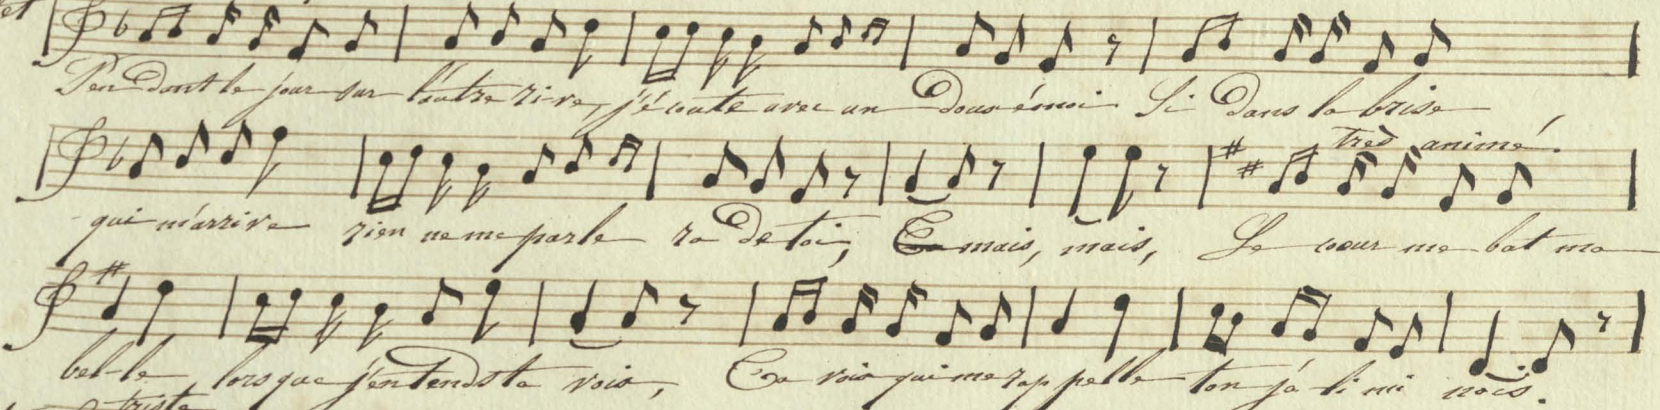 et
Pen dant le jour sur l'autre ri-ve, j'é coute avec un doux émoi Si dans la brise
très animé.
qui m'arrive rien ne me parle ra de toi, mais, mais, Le cœur me bat ma
bel-le lorsque j'entends ta voix, Ta voix qui me rap pelle ton jo li mi nois.
triste